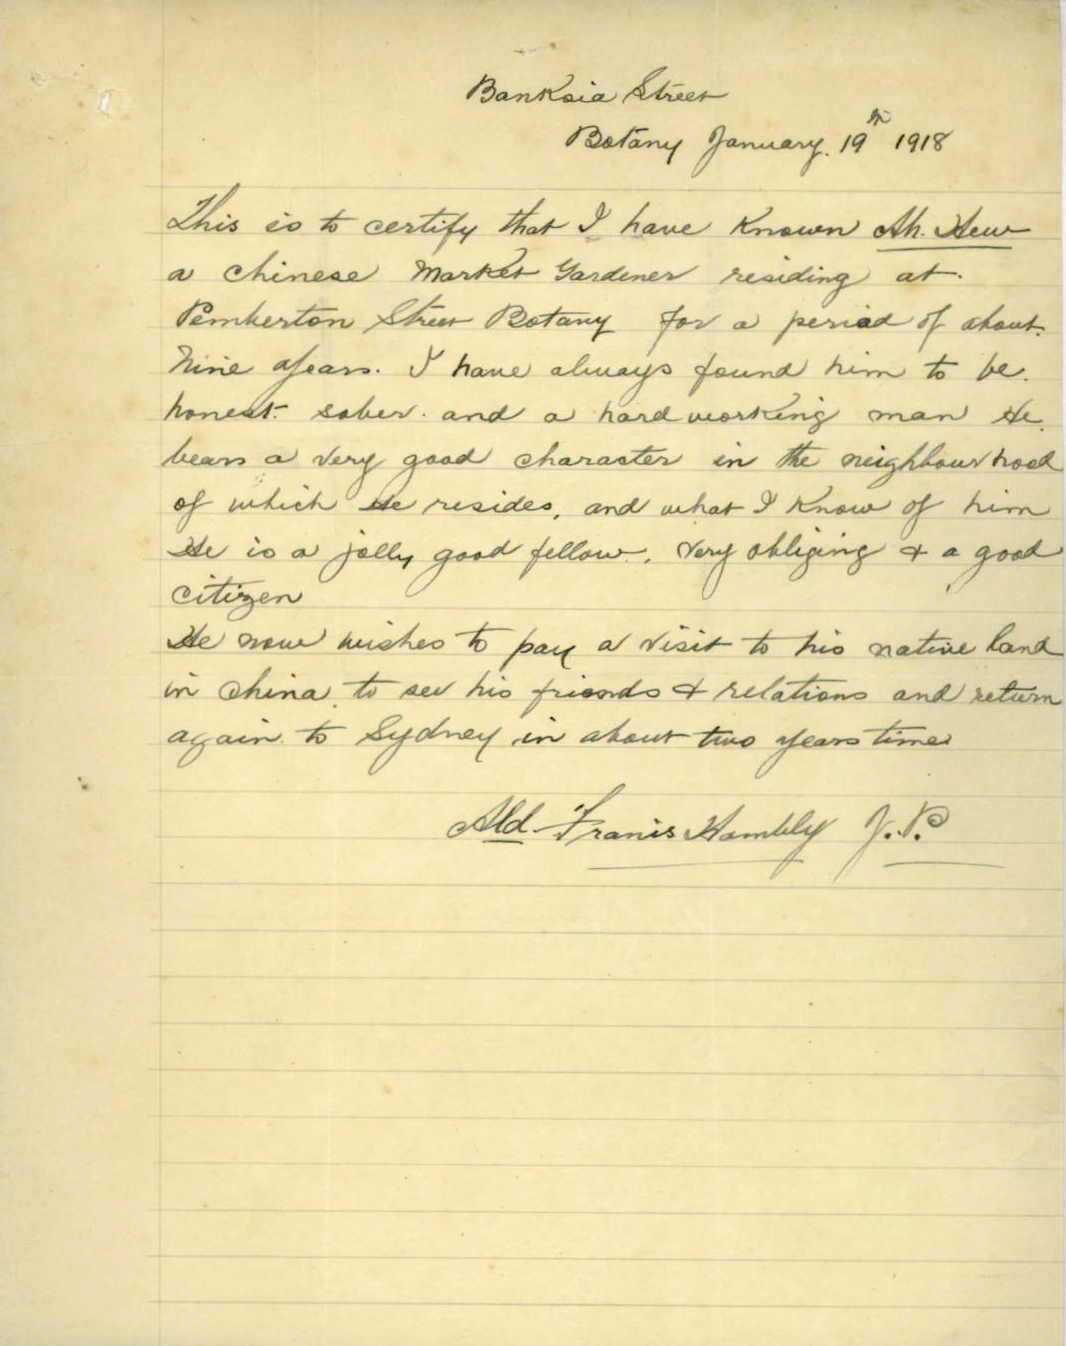 Banksia Street
Botany January. 19th 1918
This is to certify that I have known Ah. Hew
a Chinese Market Gardener residing at.
Pemberton Street Botany for a period of about.
Nine years. I have always found him to be.
honest. sober. and a hard working man He.
bears a very good character in the neighbourhood
of which He resides, and what I know of him
He is a jolly good fellow. very obliging & a good
citizen
He now wishes to pay a visit to his native land
in China, to see his friends & relations and return
again to Sydney in about two years time
Ald Franis Hambly J.P.